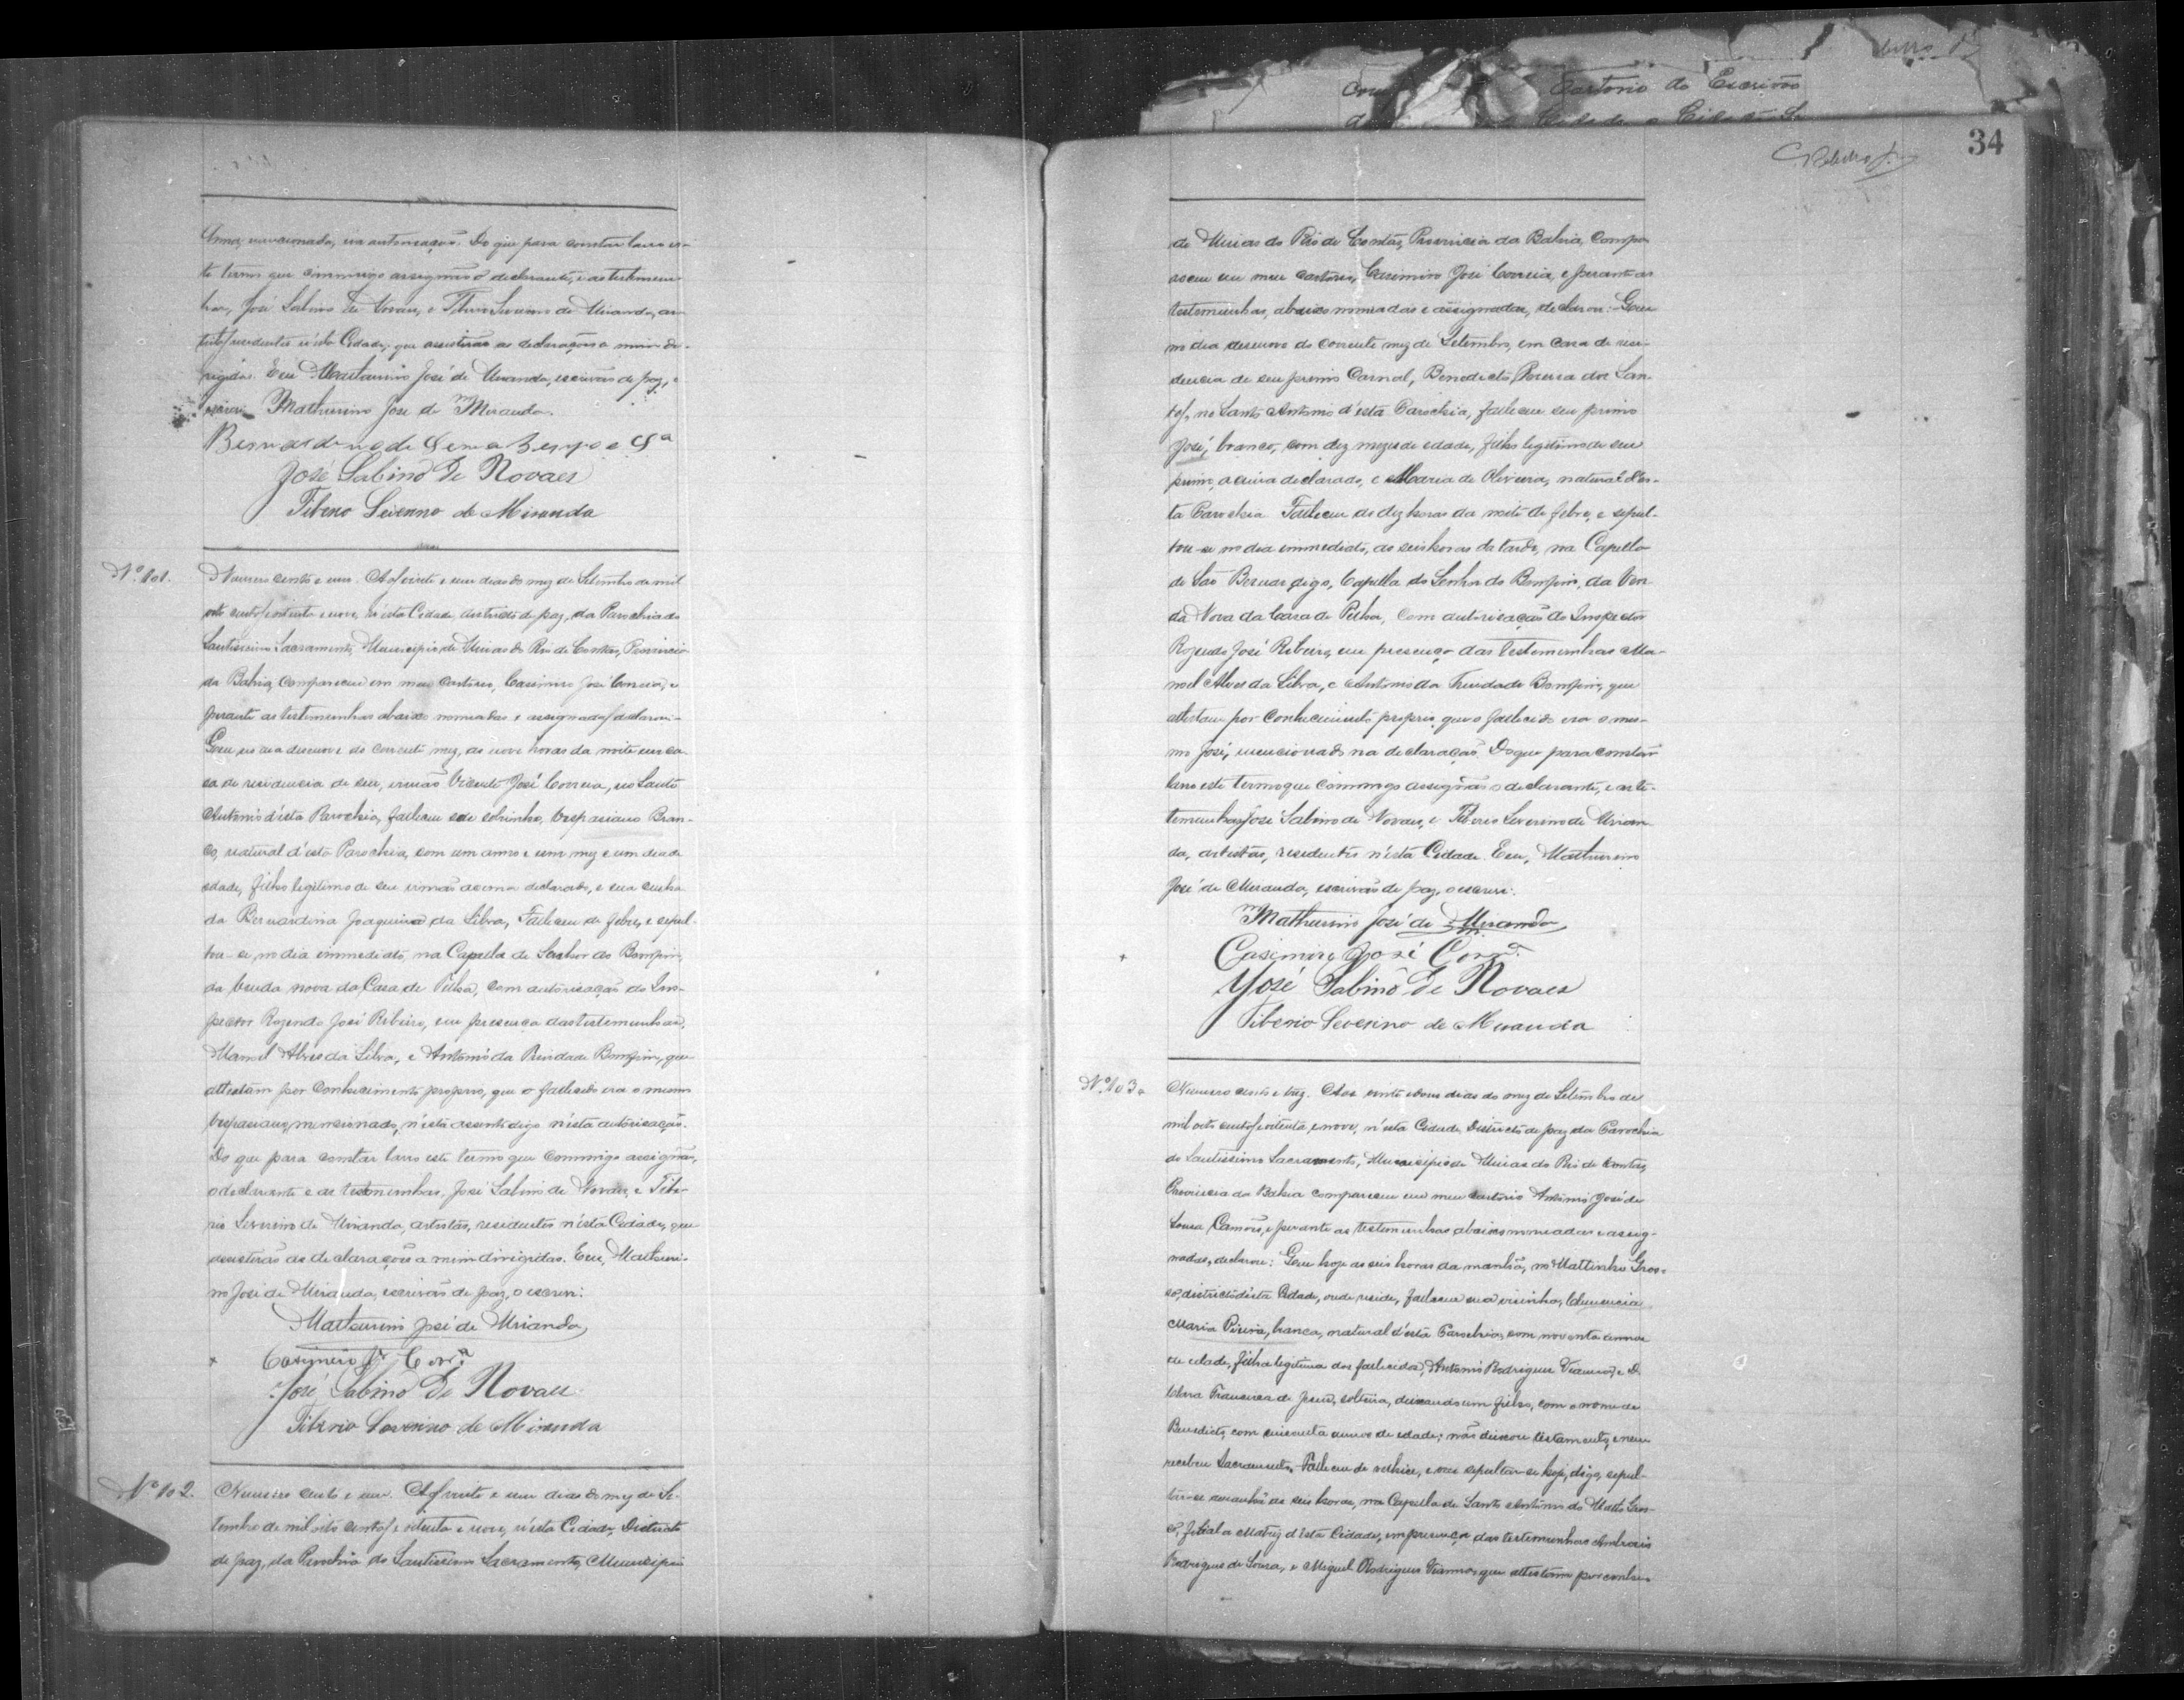 mencionado, autorisação. Do que para constar lavro es-
te termo que commigo assignão o declarante, e as testemu-
nhas, José Sabino de Novaes, e Tiberio Severino de Miranda, ar-
tistas, residentes n'esta Cidade, que assistirão as declarações a mim di-
rigidas. Eu Mathurino José de Miranda, escrivão de paz, o
escrevi. Mathurino José de Miranda.
Bernardino de Sena
José Sabino de Novaes
Tiberio Severino de Miranda
Nº 101.
Numero cento e um. Aos vinte e um dias do mez de Setembro de mil
oito centos oitenta e nove, n'esta Cidade, districto de paz, da Parochia do
Santissimo Sacramento, Municipio de Minas do Rio de Contas, Provincia
da Bahia, compareceu em meu Cartorio, Casimiro José Correia, e
perante as testemunhas abaixo nomeadas e assignadas, declarou:
Que, no dia desenove do corrente mez, as nove horas da noite em ca-
sa de residencia de seu, irmão Vicente José Correia, no Santo
Antonio d'esta Parochia, falleceu seu sobrinho, Vespasiano Bran-
co, natural d'esta Parochia, com um anno e um mez e um dia de
edade, filho legitimo de seu irmão acima declarado, e sua cunha-
da Bernardina Joaquina da Silva, Falleceu de febre, e sepul-
tou-se, no dia immediato, na Capella do Senhor do Bomfim,
da Venda nova da Casa de Telha, com autorisação do Ins-
pector Rozendo José Ribeiro, em presença das testemunhas,
Manoel Alves da Silva, e Antonio da Trindade Bomfim, que
attestam por conhecimento proprio, que o fallecido era o mesmo
Vespasiano, mencionado, n'esta digo n'esta autorisação.
Do que para constar lavro este termo que commigo assignão,
o declarante e as testemunhas, José Sabino de Novaes, e Tibe-
rio Severino de Miranda, artistas, residentes n'esta Cidade, que
assistirão as declarações a mim dirigidas. Eu, Mathuri-
no José de Miranda, escrivão de paz, o escrevi:
Mathurino José de Miranda
+ Casimiro Jé Corrª
José Sabino de Novaes
Tiberio Severino de Miranda
Nº 102.
Numero cento e um. Aos vinte e um dias do mez de Se-
tembro de mil oito centos e oitenta e nove, n'esta Cidade, Districto
de paz, da Parochia do Santissimo Sacramento, Municipio
34
de Minas do Rio de Contas, Provincia da Bahia, compa-
receu em meu Cartorio, Casimiro José Correia, e perante as
testemunhas, abaixo nomeadas e assignadas, declarou: Que
no dia desenove do corrente mez de Setembro, em casa de resi-
dencia de seu primo Carnal, Benedicto Pereira dos San-
tos, no Santo Antonio d'esta Parochia, falleceu seu primo
José, branco, com dez mezes de edade, filho legitimo de seu
primo, acima declarado, e Maria de Oliveira, natural d'es-
ta Parochia. Falleceu as dez horas da noite de febre, e sepul-
tou-se no dia immediato, as seis horas da tarde, na Capella
de São Bernar digo, Capella do Senhor do Bomfim, da Ven-
da Nova da Casa de Telha, com autorisação do Inspector
Rozendo José Ribeiro, em presença das testemunhas Ma-
noel Alves da Silva, e Antonio da Trindade Bomfim, que
attestam por conhecimento proprio, que o fallecido era o mes-
mo José, mencionado na declaração. Do que para constar
lavro este termo que commigo assignão o declarante, e as te-
temunhas José Sabino de Novaes, e Tiberio Severino de Miran-
da, artistas, residentes n'esta Cidade. Eu, Mathurino
José de Miranda, escrivão de paz, o escrevi:
Mathurino José de Miranda
+ Casimiro José Corrª
José Sabino de Novaes
Tiberio Severino de Miranda
Nº 103.
Numero cento e trez. Aos vinte e dous dias do mez de Setembro de
mil oito centos e oitenta e nove, n'esta Cidade, Districto de paz da Parochia
do Santissimo Sacramento, Municipio de Minas do Rio de Contas,
Provincia da Bahia compareceu em meu cartorio Antonio José de
Sousa Camões, e perante as testemunhas abaixo nomeadas e assig-
nadas, declarou: Que hoje as seis horas da manhã, no Mattinho Gros-
so, districto d'esta Cidade, onde reside, falleceu sua visinha, Clemencia
Maria Pereira, branca, natural d'esta Parochia, com noventa annos
de edade, filha legitima dos fallecidos, Antonio Rodrigues Vianna, e D.
Francisca de Jesus, solteira, deixando um filho, com o nome de
Benedicto, com cincoenta annos de edade; não deixou testamento, e nem
recebeu Sacramentos. Falleceu de velhice, e vae sepultar-se hoje, digo, sepul-
tar-se amanhã as seis horas, na Capella de Santo Antonio do Matto Gros-
so, filial a Matriz d'esta Cidade, em presença das testemunhas Ambrosio
Rodrigues de Sousa, e Miguel Rodrigues Vianna, que attestam por conhe-
Cartorio do Escrivão